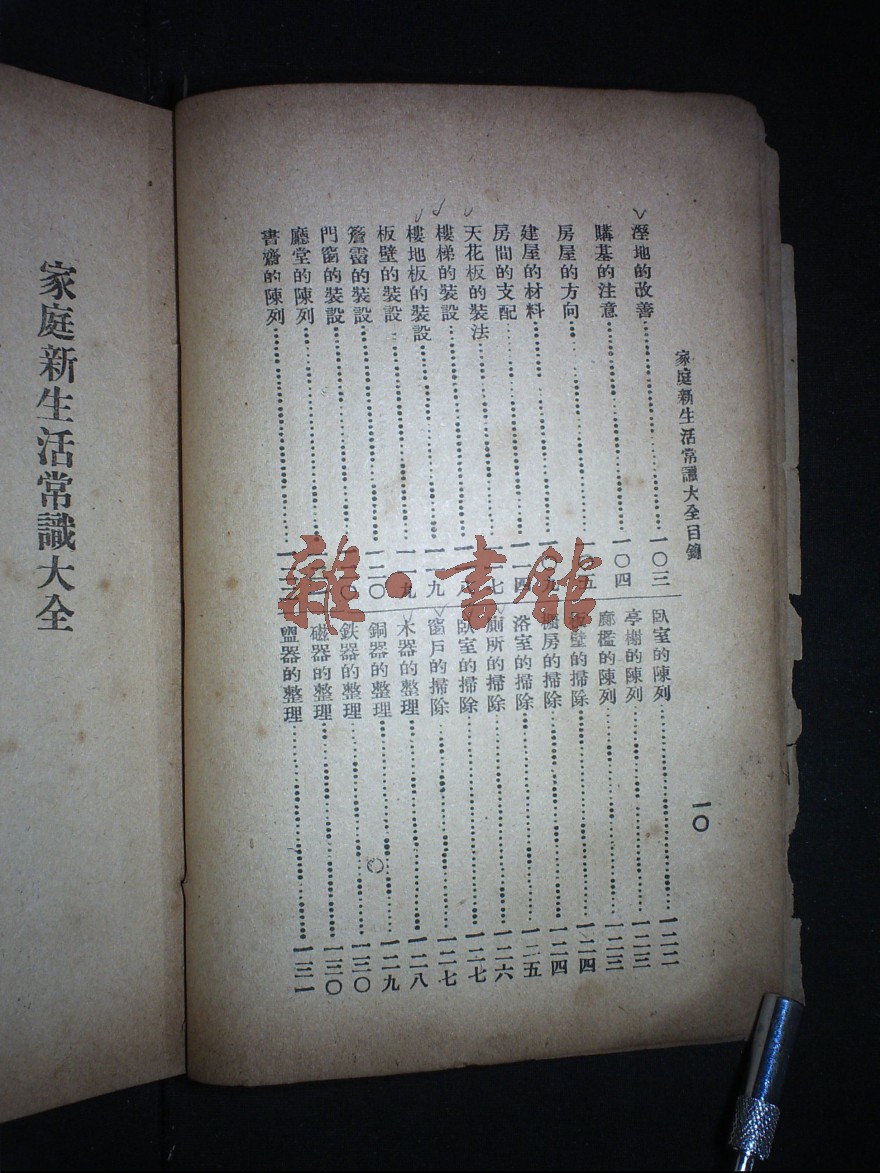 家庭新生活常識大全目錄
一〇
溼地的改善……一〇三
購基的注意……一〇四
房屋的方向……一〇五
建屋的材料……一〇九
房間的支配……一一四
天花板的裝法……一一七
樓梯的裝設……一一八
樓地板的裝設……一一九
板壁的裝設……一一九
簷霤的裝設……一二〇
門窗的裝設……一二〇
廳堂的陳列……
書齋的陳列……
臥室的陳列……一二二
亭榭的陳列……一二三
廊檻的陳列……一二三
板壁的掃除……一二四
廚房的掃除……一二四
浴室的掃除……一二五
廁所的掃除……一二六
臥室的掃除……一二七
窗戶的掃除……一二七
木器的整理……一二八
銅器的整理……一二九
鉄器的整理……一三〇
磁器的整理……一三〇
盥器的整理……一三一
家庭新生活常識大全
雜·書館